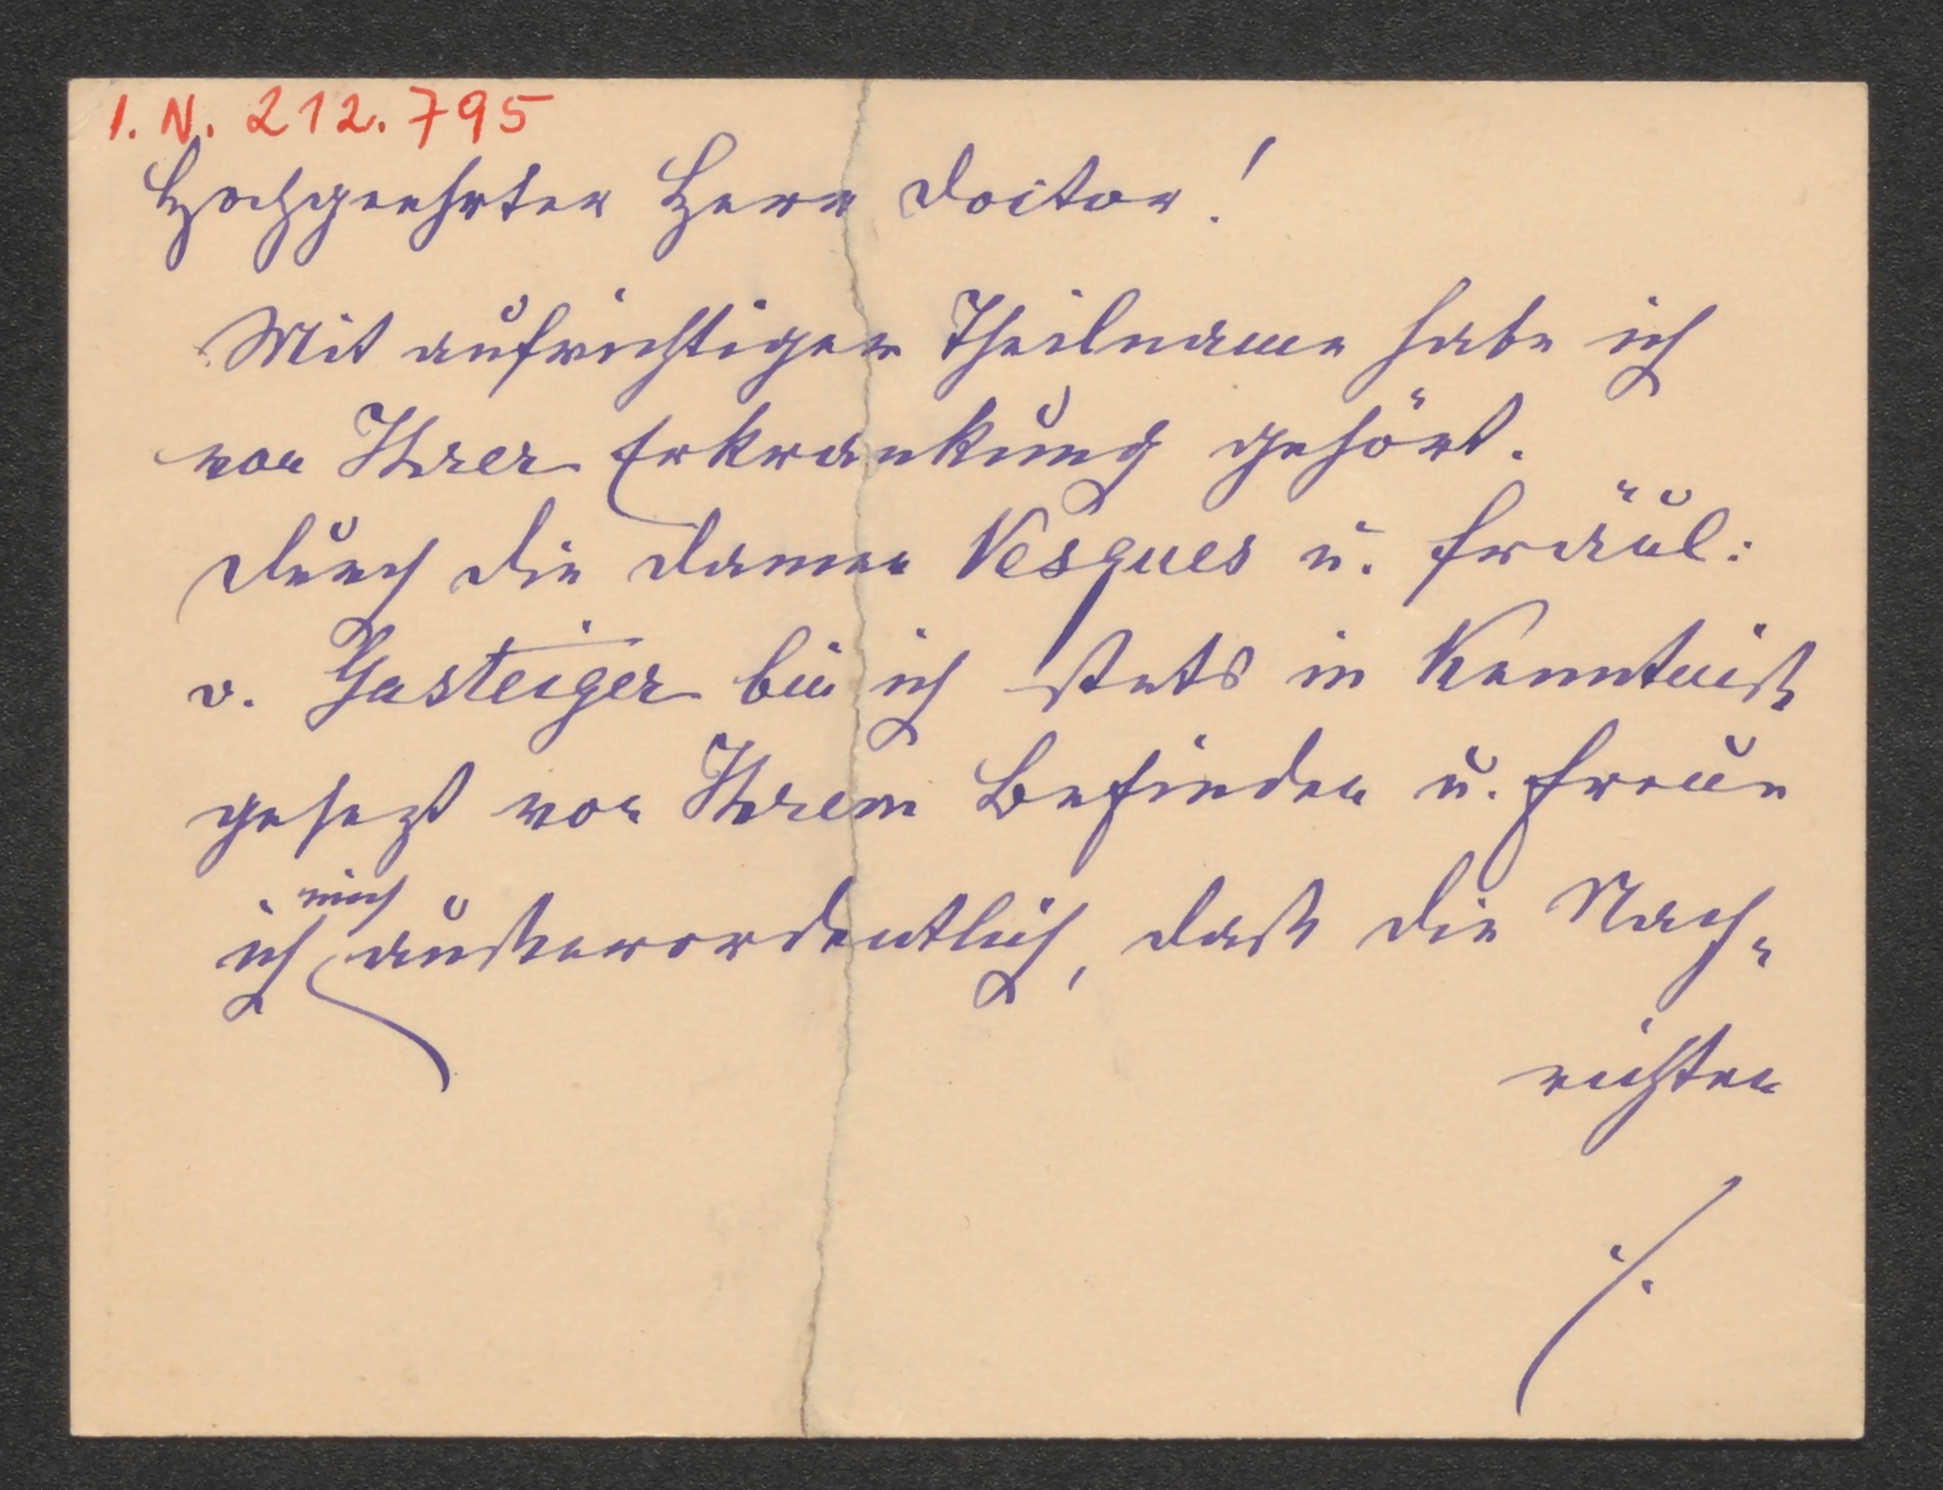 I.N. 212.795
Hochgeehrter Herr Doctor!
Mit aufrichtiger Theilname habe ich
von Ihrer Erkrankung gehört.
Durch die Damen Vesques u. Fräul:
v. Gasteiger bin ich stets in Kenntniß
gesezt von Ihrem Befinden u. freue
ich mich außerordentlich, daß die Nach-
richten
./.